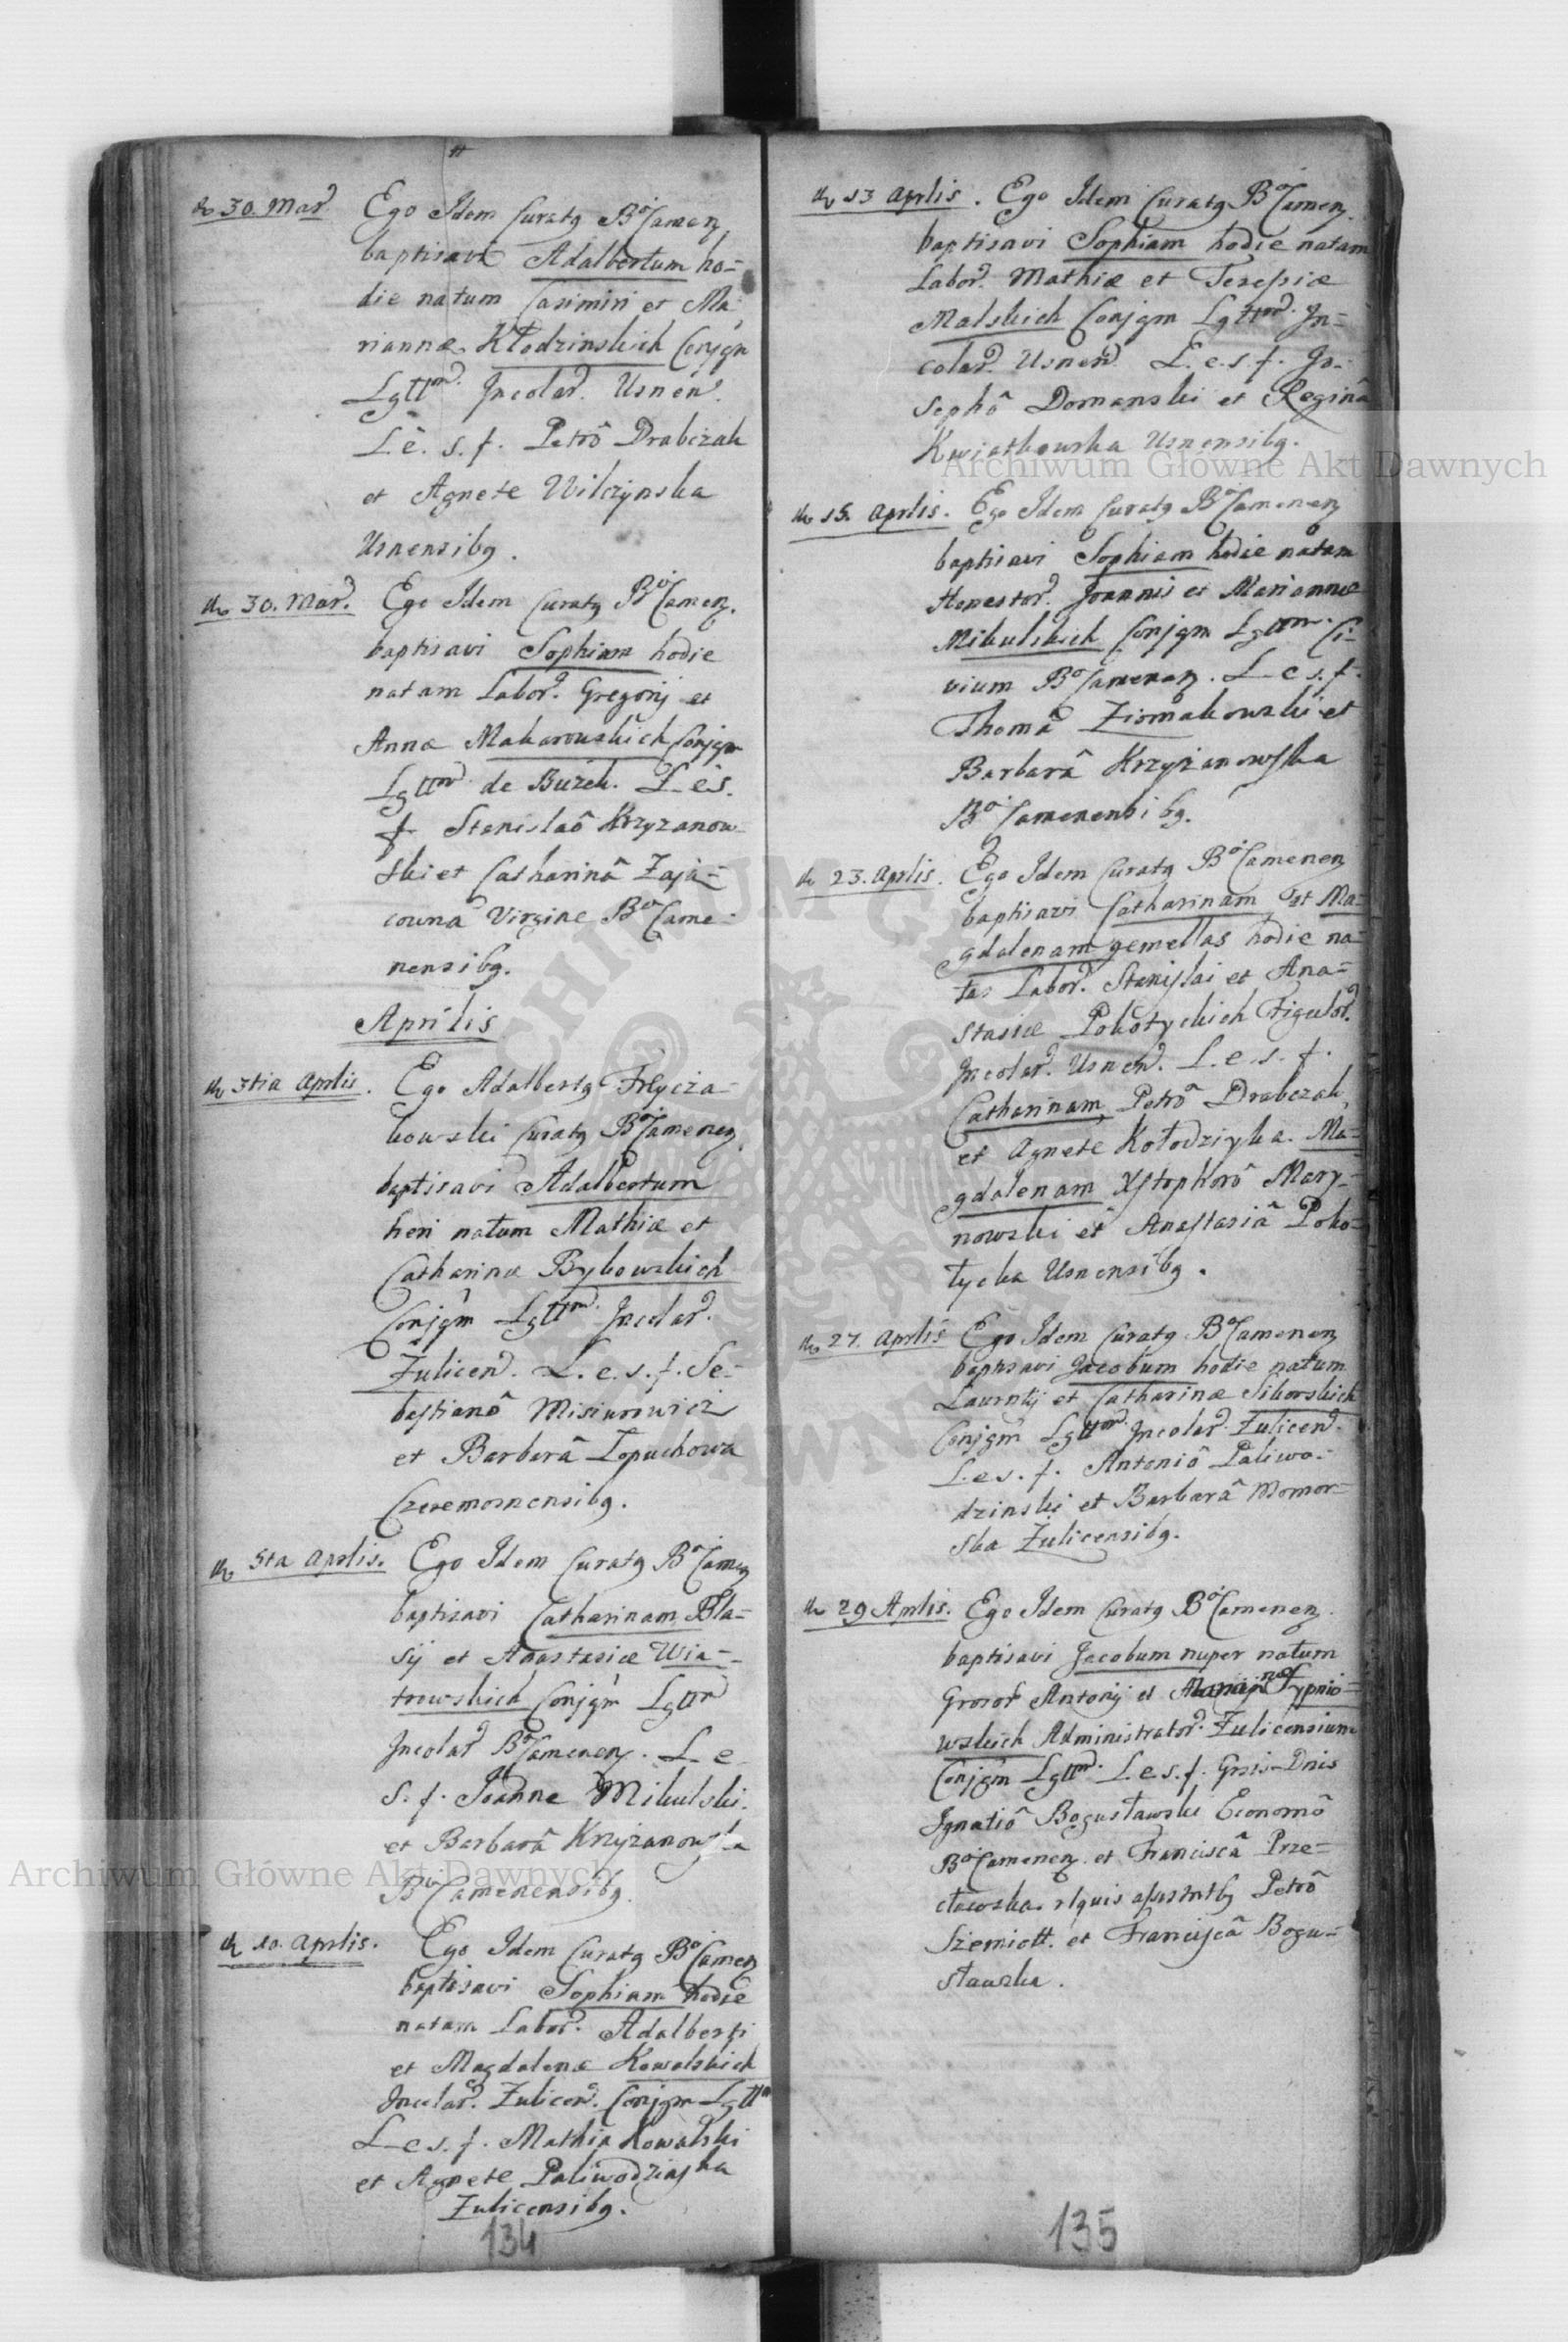 #
de 30. Mar. Ego Idem Curatg BoCamen
baptisavi Adalbertum ho=
die natum Casimiri et Ma
riannæ Kłodzinskich Conjgm
Lgttm. Incolar. Usnen.
L. e. s. f. Petrô Drabczak
et Agnete Wilczynska
Usnensibg.
de 30. Mar. Ego Idem Curatg BoCamen.
baptisavi Sophiam hodie
natam Labor. Gregorij et
Annæ Makarowskich Conjgm
Lgttm de Buzek. L e s.
f. Stanislaô Krzyzanow=
ski et Catharinâ Zaja=
cowna Virgine BoCame=
nensibg.
Aprilis
de 3tia Aprlis. Ego Adalbertg Frycza=
kowski Curatg BoCamenen
baptisavi Adalbertum
heri natum Mathiæ et
Catharinæ Bykowskich
Conjgm Lgttm. Incolar.
Zulicen. L. e. s. f. Se=
bastianô Misiurowicz
et Barbarâ Łopuchowa
Czeremosnensibg.
de 5ta Aprlis. Ego Idem Curatg BoCamen
baptisavi Catharinam Bla=
sij et Anastasiæ Wia=
trowskich Conjgm Lgttm
Incolar BoCamenen. L e
s. f. Joanne Mikulski.
et Barbarâ Krzyzanowska
BoCamenensibg.
de 10. Aprlis. Ego Idem Curatg BoCamen
baptisavi Sophiam hodie
natam Labor. Adalberti
et Magdalenæ Kowalskich
Incolar. Zulicen. Conjgm Lgttm
L e s. f. Mathia Kowalski
et Agnete Paliwodzinska
Zulicensibg.
134
de 13 Aprlis. Ego Idem Curatg BoCamen.
baptisavi Sophiam hodie natam
Labor. Mathiæ et Teressiæ
Malskich Conjgm Lgttm. In=
colar. Usnen. L. e. s. f. Jo=
sephô Domanski et Reginâ
Kwiatkowska Usnensibg.
de 15. Aprlis. Ego Idem Curatg BoCamenen
baptisavi Sophiam hodie natam
Honestor. Joannis et Mariannæ
Mikulskich Conjgm Lgttm. Ci=
vium BoCamenen. L e s. f.
Thomâ Ziomakowski et
Barbarâ Krzyzanowska
BoCamenensibg.
de 23. Aprlis. Ego Idem Curatg BoCamenen
baptisavi Catharinam et Ma=
gdalenam gemellas hodie na=
tas Labor. Stanislai et Ana=
stasiæ Pokotyckich Figulor.
Incolar. Usnen. L. e. s. f.
Catharinam Petrô Drabczak
et Agnete Kołodziyka. Ma=
gdalenam Xstophorô Mary=
nowski et Anastasiâ Poko=
tycka Usnensibg.
de 27. Aprlis Ego Idem Curatg BoCamenen
baptisavi Jacobum hodie natum
Laurntij et Catharinæ Sikorskich
Conjgm Lgttm. Incolar. Zulicen.
L. e s. f. Antoniô Paliwo=
dzinski et Barbarâ Momor=
ska Zulicensibg.
de 29 Aprlis. Ego Idem Curatg BoCamenen.
baptisavi Jacobum nuper natum
Grosor Antonij et Mariannæ Lypnio=
wskich Administrator. Zulicensium
Conjgm Lgttm. L. e s. f. Grsis Dnis
Ignatiô Bogusławski Economô
BoCamenen. et Franciscâ Prze=
cławska. rlquis assistntbg Petrô
Szemiott. et Franciscâ Bogu=
sławska.
135
Archiwum Główne Akt Dawnych
Archiwum Główne Akt Dawnych